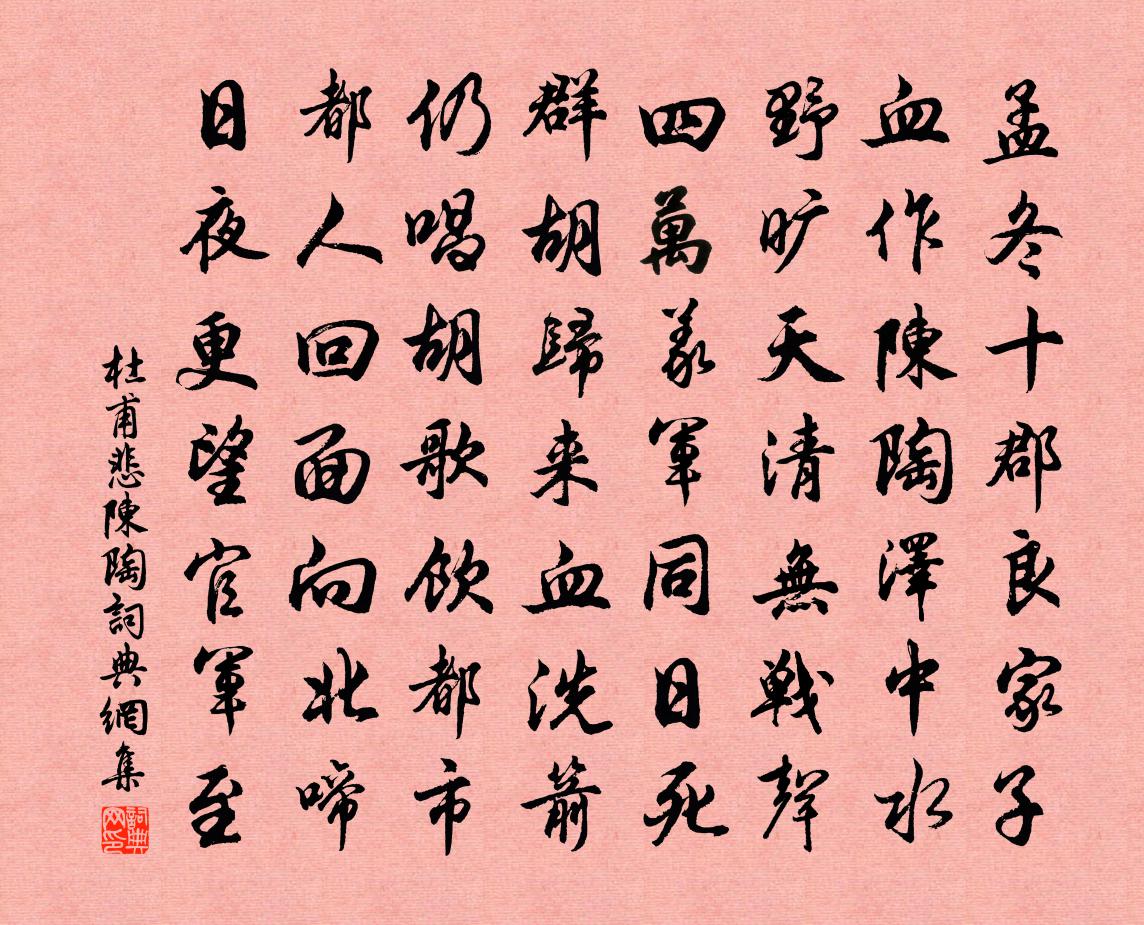 孟冬十郡良家子
血作陳陶澤中水
野旷天清無戰聲
四萬義軍同日死
群胡歸来血洗箭
仍唱胡歌飲都市
都人回面向北啼
日夜更望官軍至
杜甫悲陳陶詞典網集
詞典网印